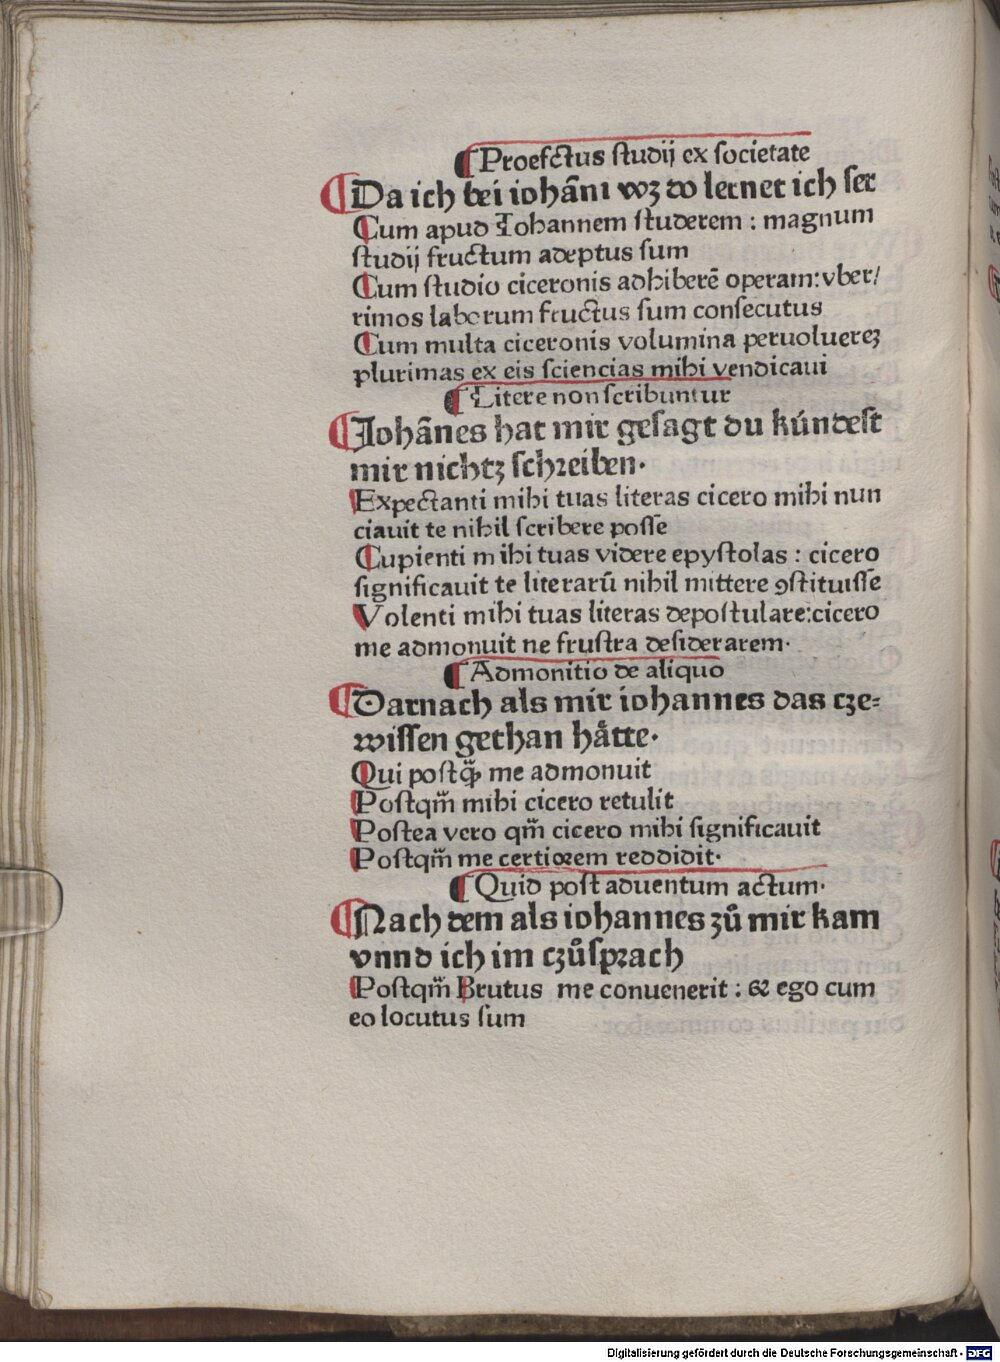 ¶ Proefectus studij ex societate
¶ Da ich bei iohāni wʒ do lernet ich ser
Cum apud Iohannem studerem : magnum
studij fructum adeptus sum
Cum studio ciceronis adhiberē operam: vber/
rimos laborum fructus sum consecutus
Cum multa ciceronis volumina peruoluereʒ
plurimas ex eis sciencias mihi vendicaui
¶ Litere non scribuntur
¶ Iohānes hat mir gesagt du kúndest
mir nichtʒ schreiben.
Expectanti mihi tuas literas cicero mihi nun
ciauit te nihil scribere posse
Cupienti mihi tuas videre epystolas : cicero
significauit te literarū nihil mittere ꝯstituisse
Volenti mihi tuas literas depostulare: cicero
me admonuit ne frustra desiderarem.
¶ Admonitio de aliquo
¶ Darnach als mir iohannes das cze=
wissen gethan håtte.
Qui postꝙ̄ me admonuit
Postqm̄ mihi cicero retulit
Postea vero qm̄ cicero mihi significauit
Postqm̄ me certiorem reddidit.
¶ Quid post aduentum actum.
¶ Nach dem als iohannes zů mir kam
vnnd ich im czůsprach
Postqm̄ Brutus me conuenerit : & ego cum
eo locutus sum
Digitalisierung gefördert durch die Deutsche Forschungsgemeinschaft - DFG